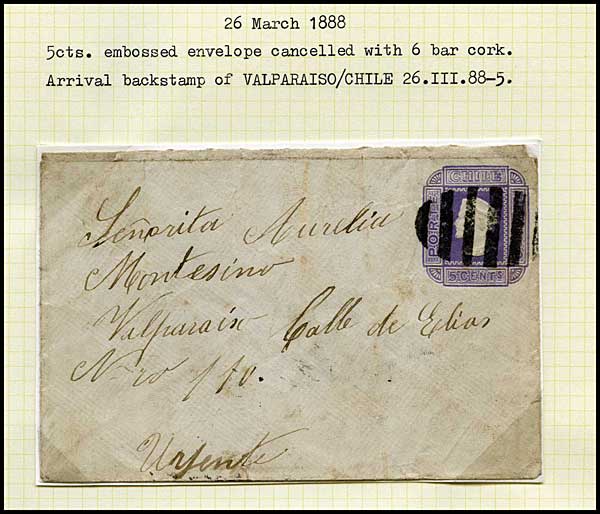 26 March 1888
5cts. embossed envelope cancelled with 6 bar cork.
Arrival backstamp of VALPARAISO/CHILE 26.III.88-5.
CHILE
PORTE
5 CENTS
Señorita Aurelia
Montesino
Valparaiso Calle de Elias
Nro 110.
Urjente